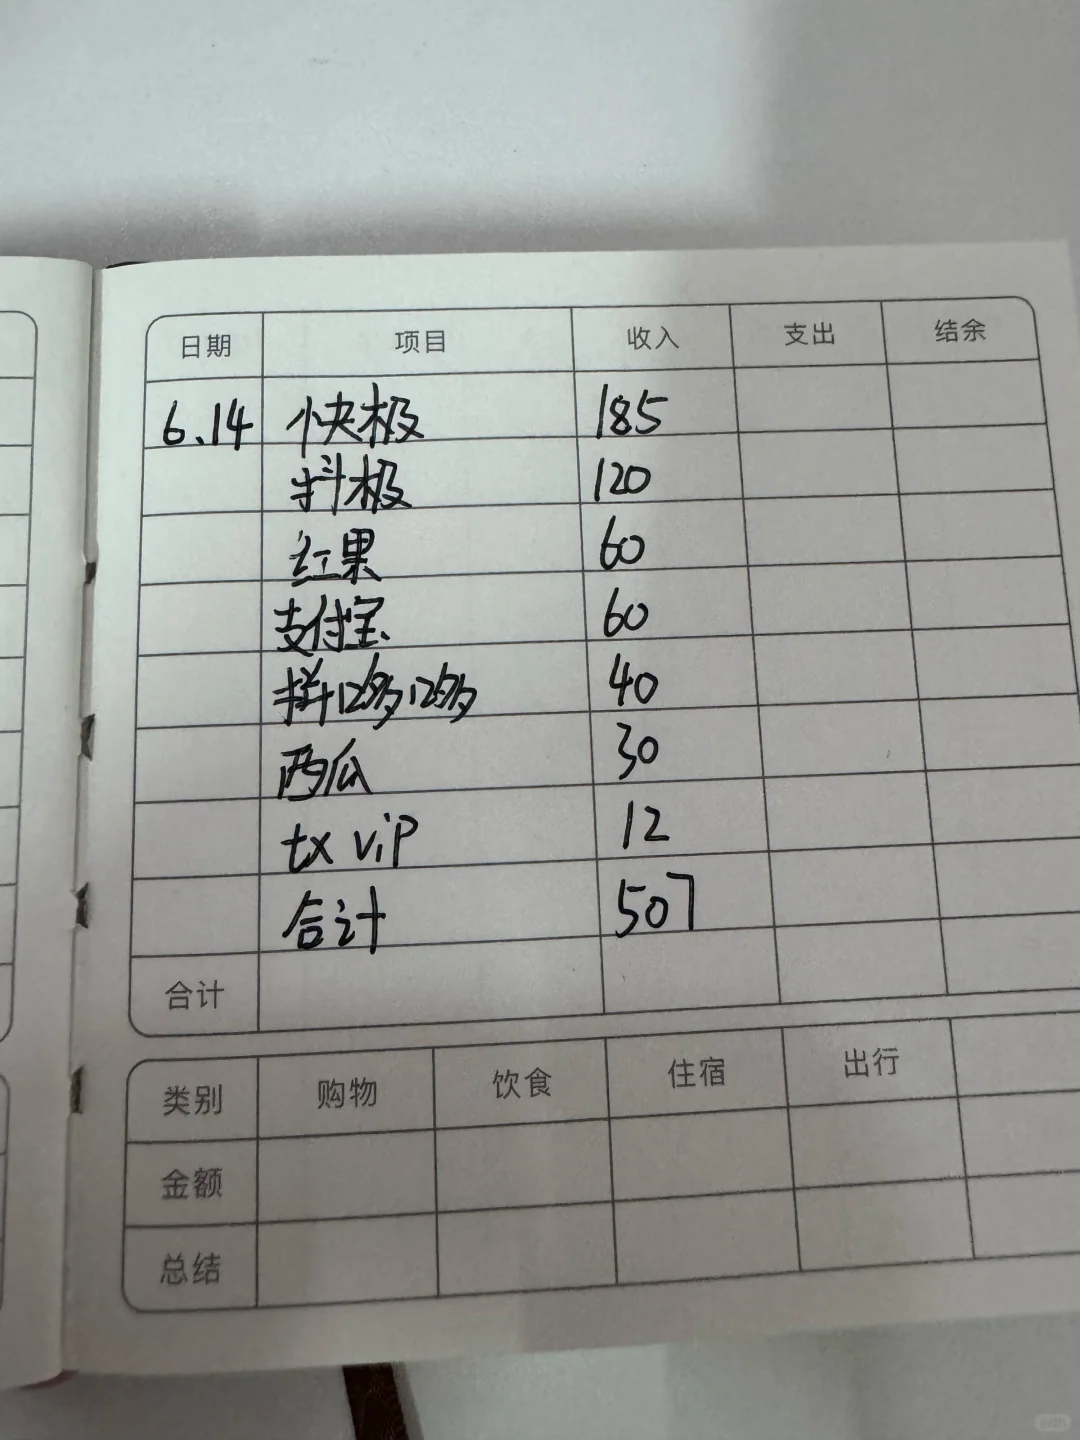 日期 项目 收入 支出 结余
6.14 快极 185
抖极 120
红果 60
支付宝 60
拼夕夕 40
西瓜 30
tx vip 12
合计 507
合计
类别 购物 饮食 住宿 出行
金额
总结